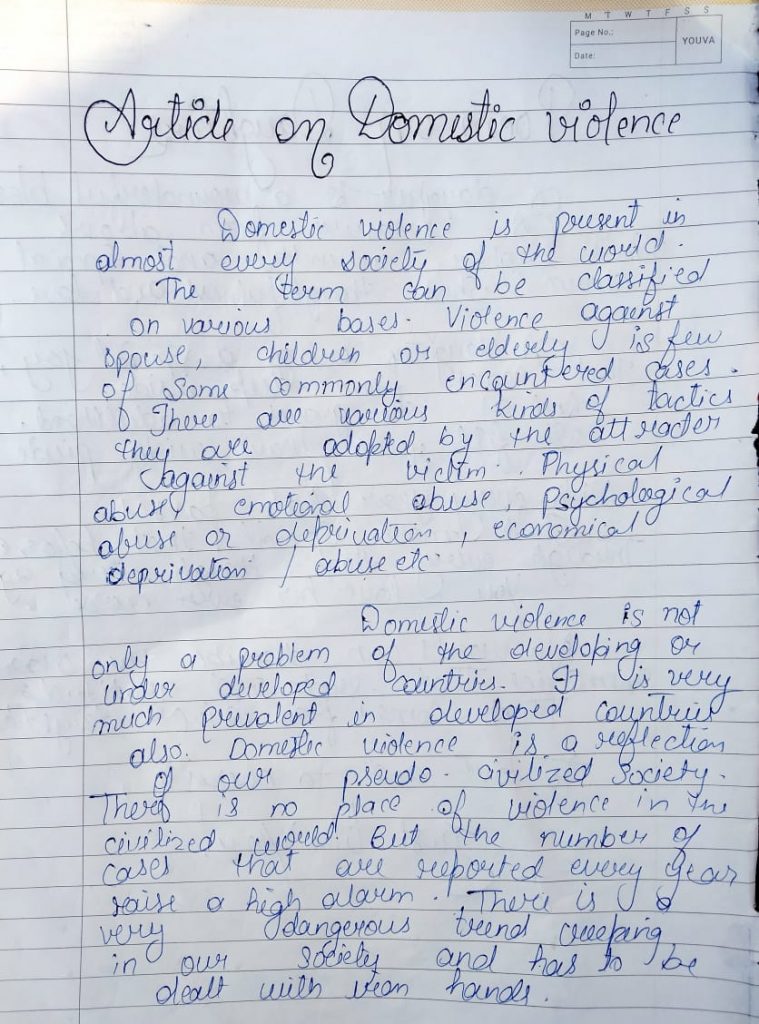 M T W T F S S
Page No.:
Date:
YOUVA
Article on Domestic violence
Domestic violence is present in
almost every society of the world.
The term can be classified
on various bases. Violence against
spouse, children or elderly is few
of some commonly encountered cases.
There are various kinds of tactics
they are adopted by the attracter
against the victim. Physical
abuse, emotional abuse, psychological
abuse or deprivation, economical
deprivation / abuse etc.
Domestic violence is not
only a problem of the developing or
under developed countries. It is very
much prevalent in developed countries
also. Domestic violence is a reflection
of our pseudo-civilized society.
There is no place of violence in the
civilized world. But the number of
cases that are reported every year
raise a high alarm. There is a
very dangerous trend creeping
in our society and has to be
dealt with iron hands.